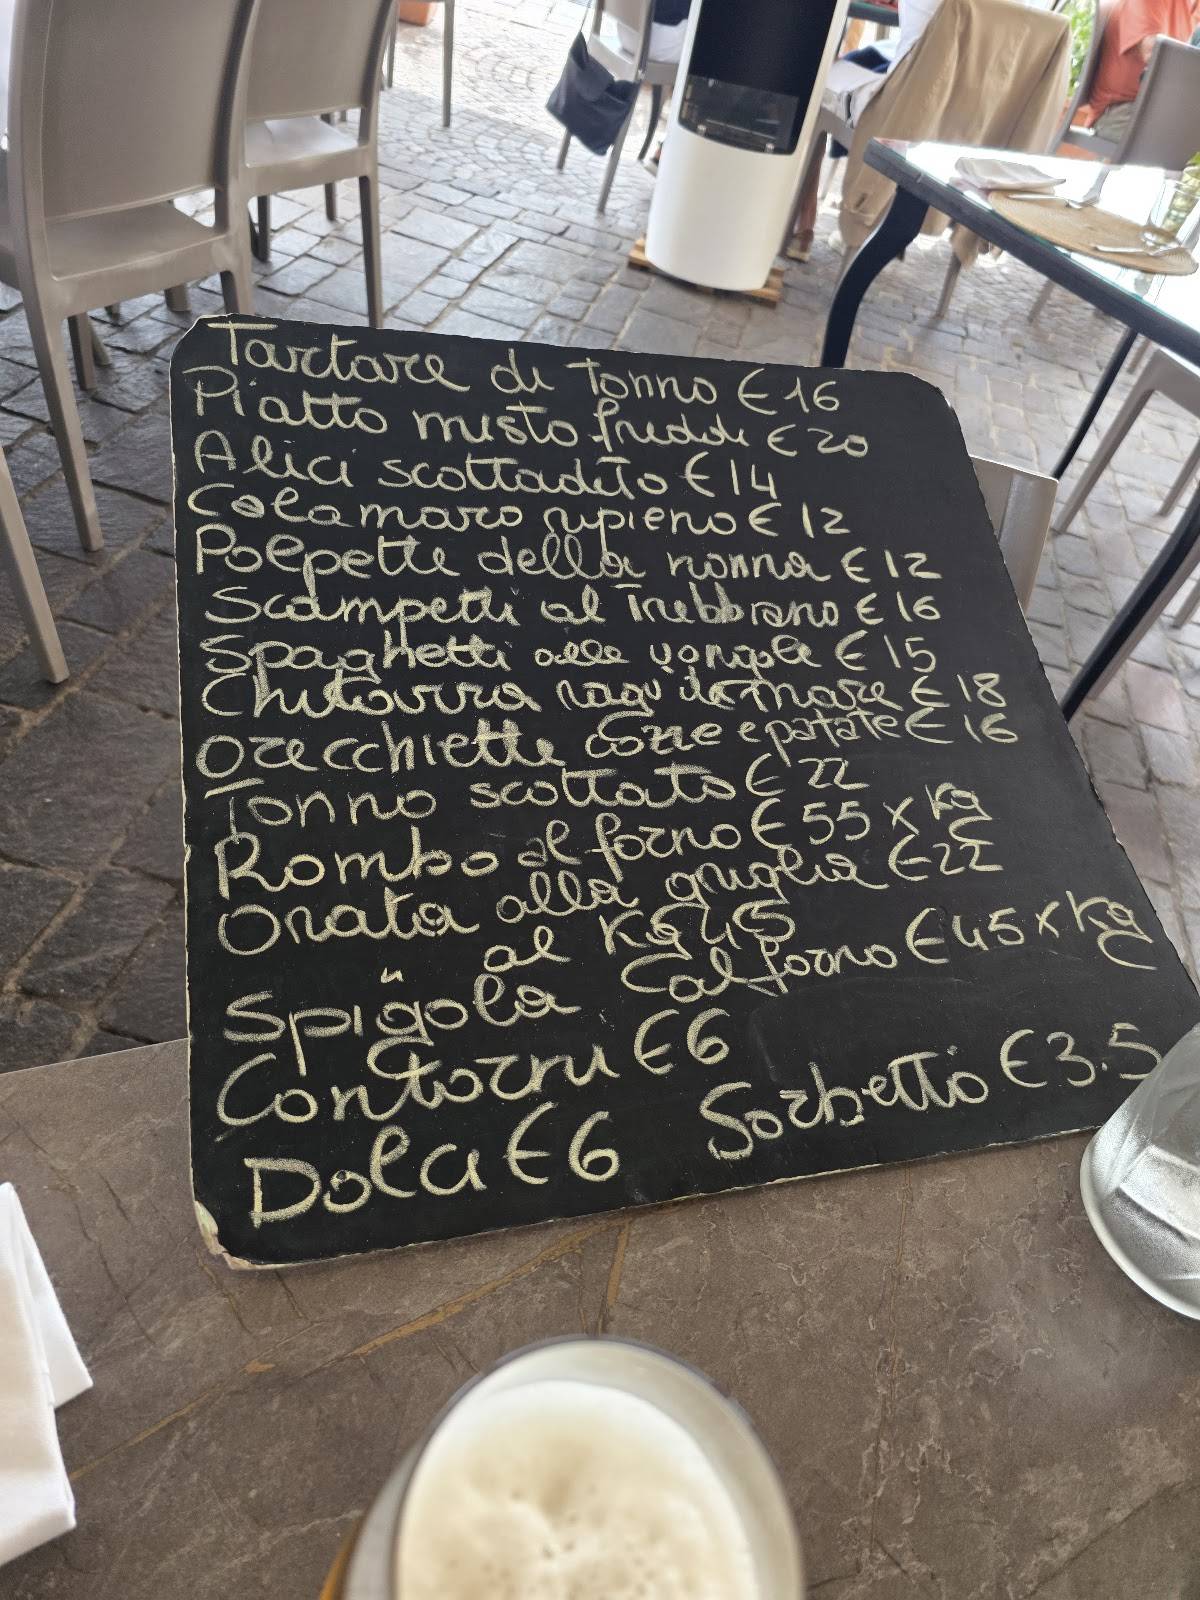 Tartare di Tonno € 16
Piatto misto freddi € 20
Alici scottadito € 14
Calamaro ripieno € 12
Polpette della nonna € 12
Scampetti al Trebbiano € 16
Spaghetti alle vongole € 15
Chitarra ragu' mare € 18
Orecchiette cozze e patate € 16
Tonno scottato € 22
Rombo al forno € 55 x kg
Orata alla griglia € 22
" al Kg 45
Spigola al forno € 45 x kg
Contorni € 6
Dolci € 6 Sorbetto € 3.5